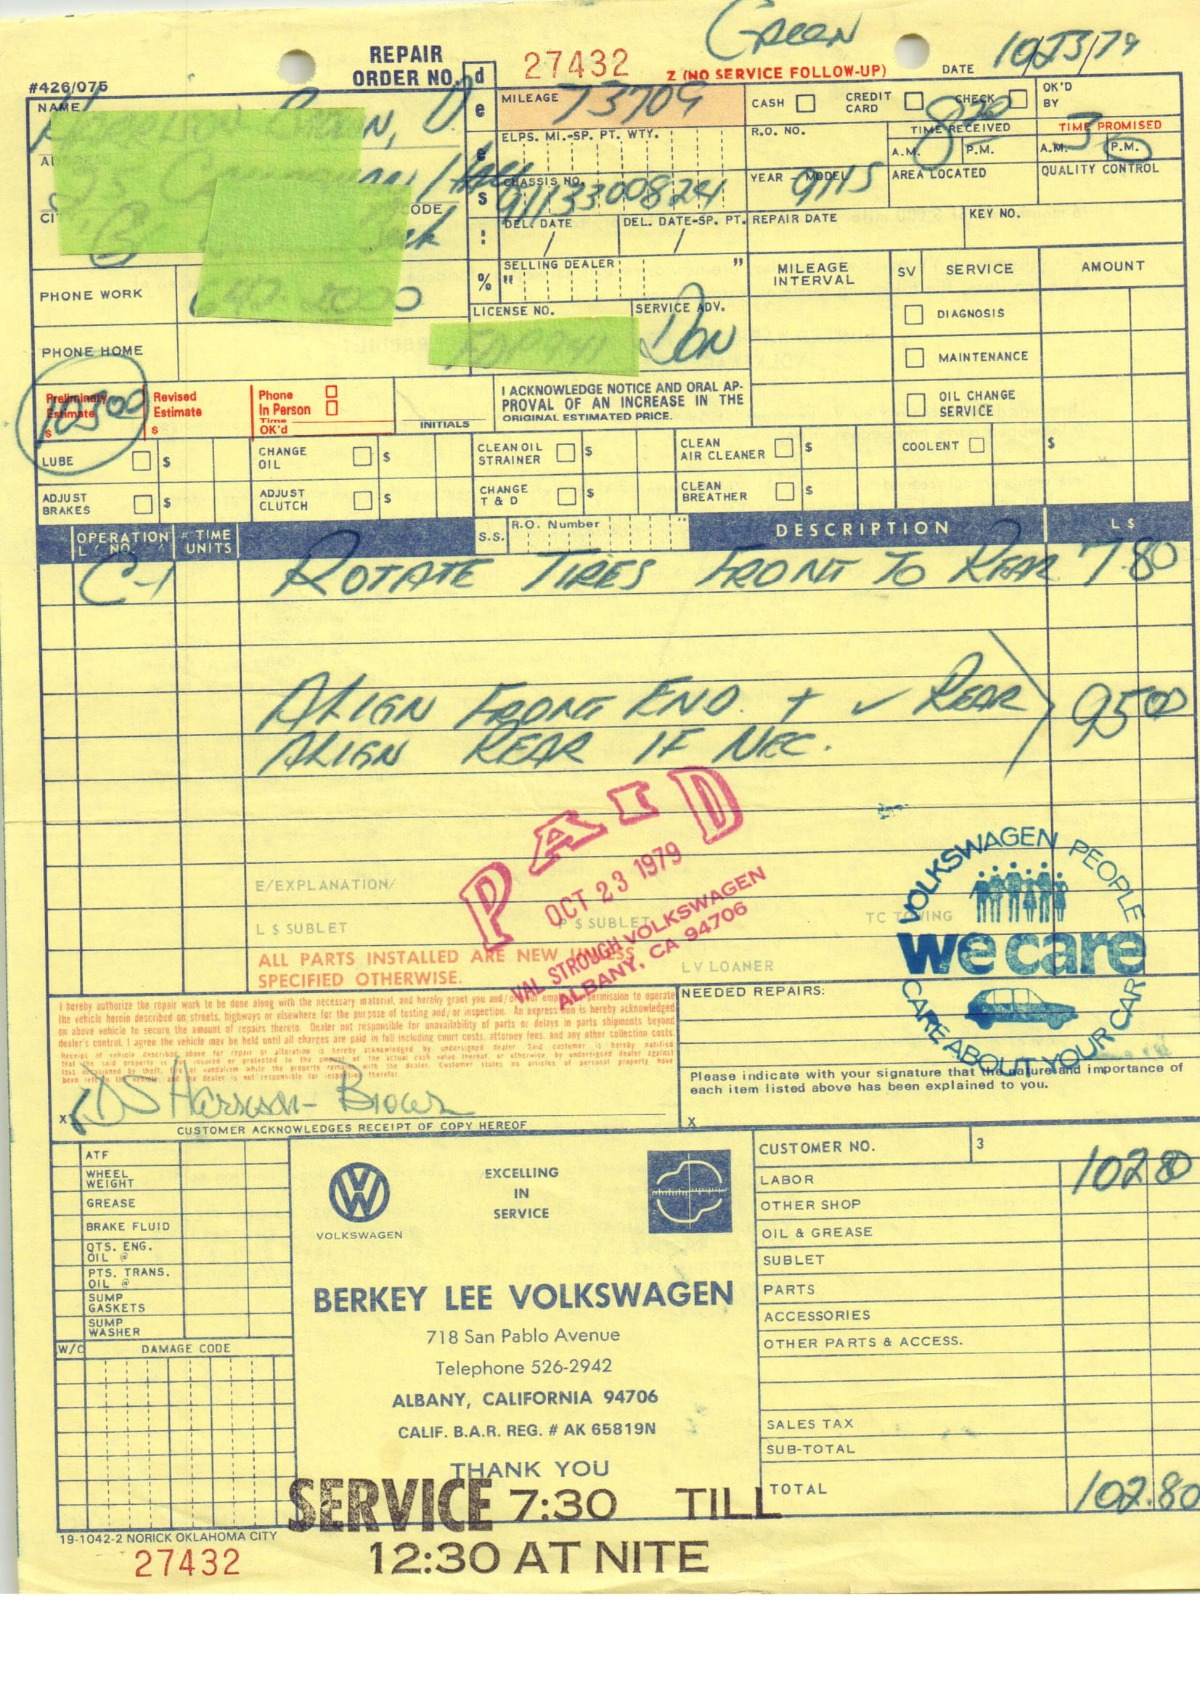 Green
10/23/79
REPAIR ORDER NO. 27432
Z (NO SERVICE FOLLOW-UP) DATE
#426/075
NAME
MILEAGE 73709
CASH CREDIT CARD CHECK
OK'D BY
ELPS. MI.-SP. PT. WTY.
R.O. NO.
TIME RECEIVED 8
A.M. P.M.
TIME PROMISED
A.M. P.M.
CHASSIS NO. 9113300824
YEAR - MODEL 911S
AREA LOCATED
QUALITY CONTROL
CODE
DEL. DATE / DEL. DATE-SP. PT. / REPAIR DATE
KEY NO.
SELLING DEALER
MILEAGE INTERVAL SV SERVICE AMOUNT
PHONE WORK
LICENSE NO.
SERVICE ADV. DON
DIAGNOSIS
PHONE HOME
MAINTENANCE
OIL CHANGE SERVICE
Preliminary Estimate $ 10500
Revised Estimate $
Phone
In Person
Time
OK'd
INITIALS
I ACKNOWLEDGE NOTICE AND ORAL AP-
PROVAL OF AN INCREASE IN THE
ORIGINAL ESTIMATED PRICE.
LUBE $ CHANGE OIL $ CLEAN OIL STRAINER $ CLEAN AIR CLEANER $ COOLENT $
ADJUST BRAKES $ ADJUST CLUTCH $ CHANGE T & D $ CLEAN BREATHER $
OPERATION NO. TIME UNITS S.S. R.O. Number DESCRIPTION L $
C-1 ROTATE TIRES FRONT TO REAR 7.80
ALIGN FRONT END. + ✓ REAR 95 00
ALIGN REAR IF NEC.
PAID
OCT 23 1979
VAL STROUGH VOLKSWAGEN
ALBANY, CA 94706
VOLKSWAGEN PEOPLE
we care
CARE ABOUT YOUR CAR
E/EXPLANATION/
L $ SUBLET P $ SUBLET TC TOWING
ALL PARTS INSTALLED ARE NEW UNLESS
SPECIFIED OTHERWISE.
LV LOANER
I hereby authorize the repair work to be done along with the necessary material, and hereby grant you and/or your employees permission to operate
the vehicle herein described on streets, highways or elsewhere for the purpose of testing and/or inspection. An express lien is hereby acknowledged
on above vehicle to secure the amount of repairs thereto. Dealer not responsible for unavailability of parts or delays in parts shipments beyond
dealer's control. I agree the vehicle may be held until all charges are paid in full including court costs, attorney fees, and any other collection costs.
NEEDED REPAIRS:
Please indicate with your signature that the nature and importance of
each item listed above has been explained to you.
X DS Harrison-Brown
CUSTOMER ACKNOWLEDGES RECEIPT OF COPY HEREOF
X
ATF
WHEEL WEIGHT
GREASE
BRAKE FLUID
QTS. ENG. OIL @
PTS. TRANS. OIL @
SUMP GASKETS
SUMP WASHER
W/C DAMAGE CODE
VOLKSWAGEN
EXCELLING
IN
SERVICE
BERKEY LEE VOLKSWAGEN
718 San Pablo Avenue
Telephone 526-2942
ALBANY, CALIFORNIA 94706
CALIF. B.A.R. REG. # AK 65819N
THANK YOU
CUSTOMER NO. 3
LABOR 102 80
OTHER SHOP
OIL & GREASE
SUBLET
PARTS
ACCESSORIES
OTHER PARTS & ACCESS.
SALES TAX
SUB-TOTAL
TOTAL 102.80
SERVICE 7:30 TILL
12:30 AT NITE
19-1042-2 NORICK OKLAHOMA CITY
27432